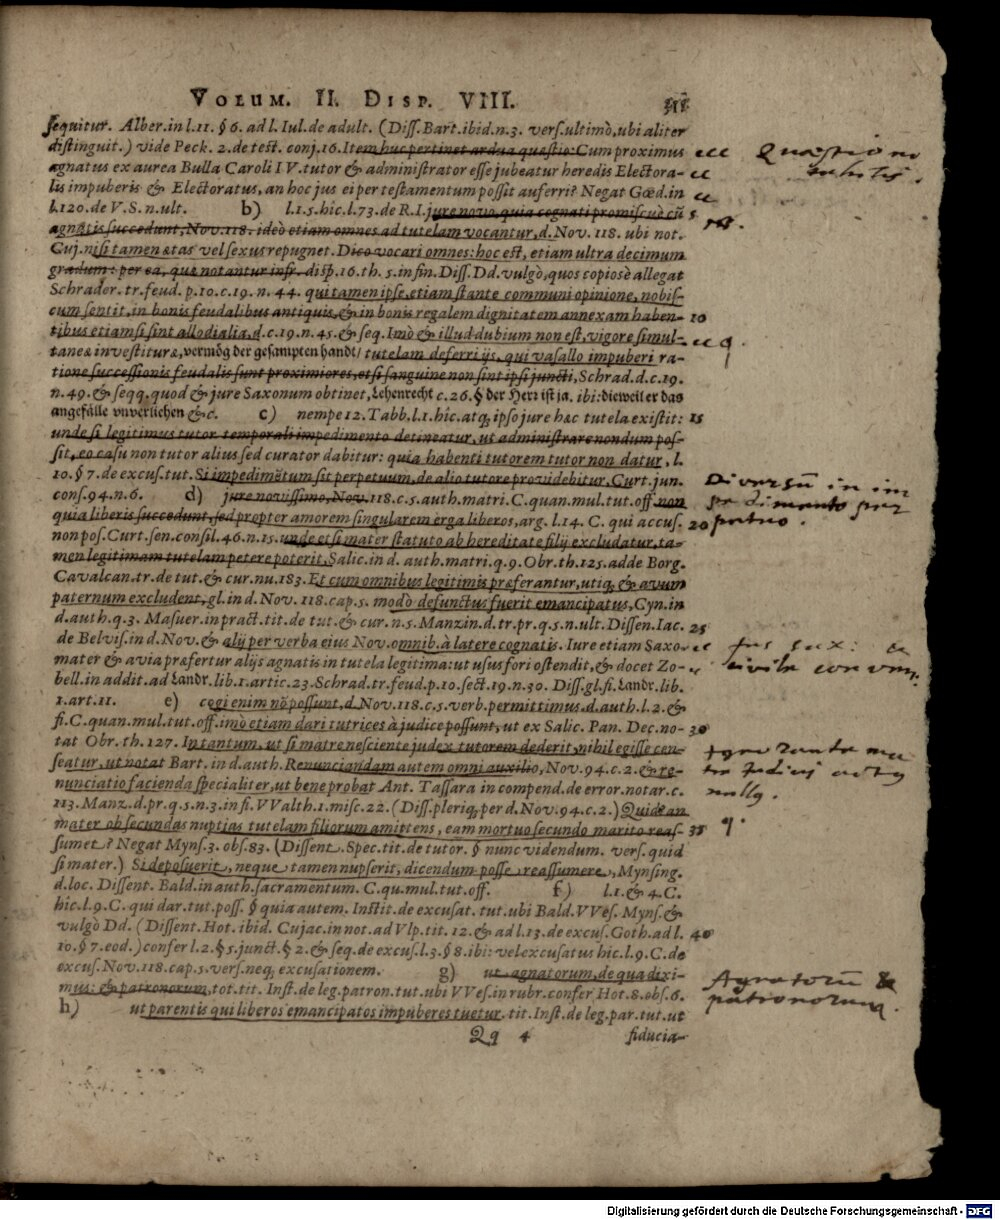 VOLUM. II. DISP. VIII.
sequitur. Alber. in l. 11. § 6. ad l. Iul. de adult. (Diss. Bart. ibid. n. 3. vers. ultimò, ubi aliter
distinguit.) vide Peck. 2. de test. conj. 16. Item huc pertinet ardua quæstio: Cum proximus
agnatus ex aurea Bulla Caroli IV. tutor & administrator esse jubeatur heredis Electora-
lis impuberis & Electoratus, an hoc jus ei per testamentum possit auferri? Negat Gœd. in
l. 120. de V. S. n. ult. b) l. 1. s. hic. l. 73. de R. I. jure novo, quia cognati promiscuè cū 5
agnatis succedunt, Nov. 118. ideò etiam omnes ad tutelam vocantur, d. Nov. 118. ubi not.
Cuj. nisi tamen ætas vel sexus repugnet. Dico vocari omnes: hoc est, etiam ultra decimum
gradum: per ea, quæ notantur infr. disp. 16. th. 5. in fin. Diss. Dd. vulgò, quos copiosè allegat
Schrader. tr. feud. p. 10. c. 19. n. 44. qui tamen ipse, etiam stante communi opinione, nobis-
cum sentit, in bonis feudalibus antiquis, & in bonis regalem dignitatem annexam haben- 10
tibus etiamsi sint allodialia, d. c. 19. n. 45. & seq. Imò & illud dubium non est, vigore simul-
taneæ investituræ, vermög der gesampten handt/ tutelam deferri ijs, qui vasallo impuberi ra-
tione successionis feudalis sunt proximiores, etsi sanguine non sint ipsi juncti, Schrad. d. c. 19.
n. 49. & seqq. quod & jure Saxonum obtinet, Lehenrecht c. 26. § der Herr ist ja. ibi: dieweil er das
angefälle vnverlichen &c. c) nempe 12. Tabb. l. 1. hîc. atq; ipso jure hæc tutela existit: 15
unde si legitimus tutor temporali impedimento detineatur, ut administrare nondum pos-
sit, eo casu non tutor alius sed curator dabitur: quia habenti tutorem tutor non datur, l.
10. § 7. de excus. tut. Si impedimētum sit perpetuum, de alio tutore providebitur, Curt. jun.
cons. 94. n. 6. d) jure novissimo, Nov. 118. c. 5. auth. matri. C. quan. mul. tut. off. non
quia liberis succedunt, sed propter amorem singularem erga liberos, arg. l. 14. C. qui accus. 20
non pos. Curt. sen. consil. 46. n. 15. unde etsi mater statuto ab hereditate filij excludatur, ta-
men legitimam tutelam petere poterit, Salic. in d. auth. matri. q. 9. Obr. th. 125. adde Borg.
Cavalcan. tr. de tut. & cur. nu. 183. Et cum omnibus legitimis præferantur, utiq; & avum
paternum excludent, gl. in d. Nov. 118. cap. 5. modò defunctus fuerit emancipatus, Cyn. in
d. auth. q. 3. Masuer. in pract. tit. de tut. & cur. n. 5. Manz. in d. tr. pr. q. 5. n. ult. Dissen. Iac. 25
de Belvis. in d. Nov. & alij per verba eius Nov. omnib. à latere cognatis. Iure etiam Saxo-
mater & avia præfertur alijs agnatis in tutela legitima: ut usus fori ostendit, & docet Zo-
bell. in addit. ad Landr. lib. 1. artic. 23. Schrad. tr. feud. p. 10. sect. 19. n. 30. Diss. gl. fi. Landr. lib.
1. art. 11. e) cogi enim nō possunt, d. Nov. 118. c. 5. verb. permittimus. d. auth. l. 2. &
fi. C. quan. mul. tut. off. imò etiam dari tutrices à judice possunt, ut ex Salic. Pan. Dec. no- 30
tat Obr. th. 127. In tantum, ut si matre nesciente judex tutorem dederit, nihil egisse cen-
seatur, ut notat Bart. in d. auth. Renunciandam autem omni auxilio, Nov. 94. c. 2. & re-
nunciatio facienda specialiter, ut bene probat Ant. Tassara in compend. de error. notar. c.
113. Manz. d. pr. q. 5. n. 3. in fi. VValth. 1. misc. 22. (Diss. pleriq; per d. Nov. 94. c. 2.) Quid e an
mater ob secundas nuptias tutelam filiorum amittens, eam mortuo secundo marito reas- 35
sumet? Negat Myns. 3. obs. 83. (Dissent. Spec. tit. de tutor. § nunc videndum. vers. quid
si mater.) Si deposuerit, neque tamen nupserit, dicendum posse reassumere, Mynsing.
d. loc. Dissent. Bald. in auth. sacramentum. C. qu. mul. tut. off. f) l. 1. & 4. C.
hîc. l. 9. C. qui dar. tut. poss. § quia autem. Instit. de excusat. tut. ubi Bald. VVes. Myns. &
vulgò Dd. (Dissent. Hot. ibid. Cujac. in not. ad Vlp. tit. 12. & ad l. 13. de excus. Goth. ad l. 40
10. § 7. eod.) confer l. 2. § 5. junct. § 2. & seq. de excus. l. 3. § 8. ibi: vel excusatus hic. l. 9. C. de
excus. Nov. 118. cap. 5. vers. neq; excusationem. g) ut agnatorum, de qua dixi-
mus: & patronorum, tot. tit. Inst. de leg. patron. tut. ubi VVes. in rubr. confer Hot. 8. obs. 6.
h) ut parentis qui liberos emancipatos impuberes tuetur. tit. Inst. de leg. par. tut. ut
Qq 4 fiducia-
Quæstio
Diversū in im
pedimento per
petuo.
Jus Sax:
civile
Ignorante ma
tre Judicis actus
nullus.
q.
Agnatorū &
patronorum.
Digitalisierung gefördert durch die Deutsche Forschungsgemeinschaft - DFG